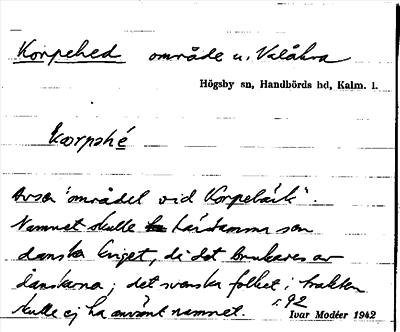 Korpehed område u. Valåkra
Högsby sn, Handbörds hd, Kalm. l.
Korpehé
Avser "området vid Korpebäck".
Namnet skulle härstamma från
danska kriget, då det brukades av
danskarna; det svenska folket i trakten
skulle ej ha använt namnet. s. 92
Ivar Modéer 1942